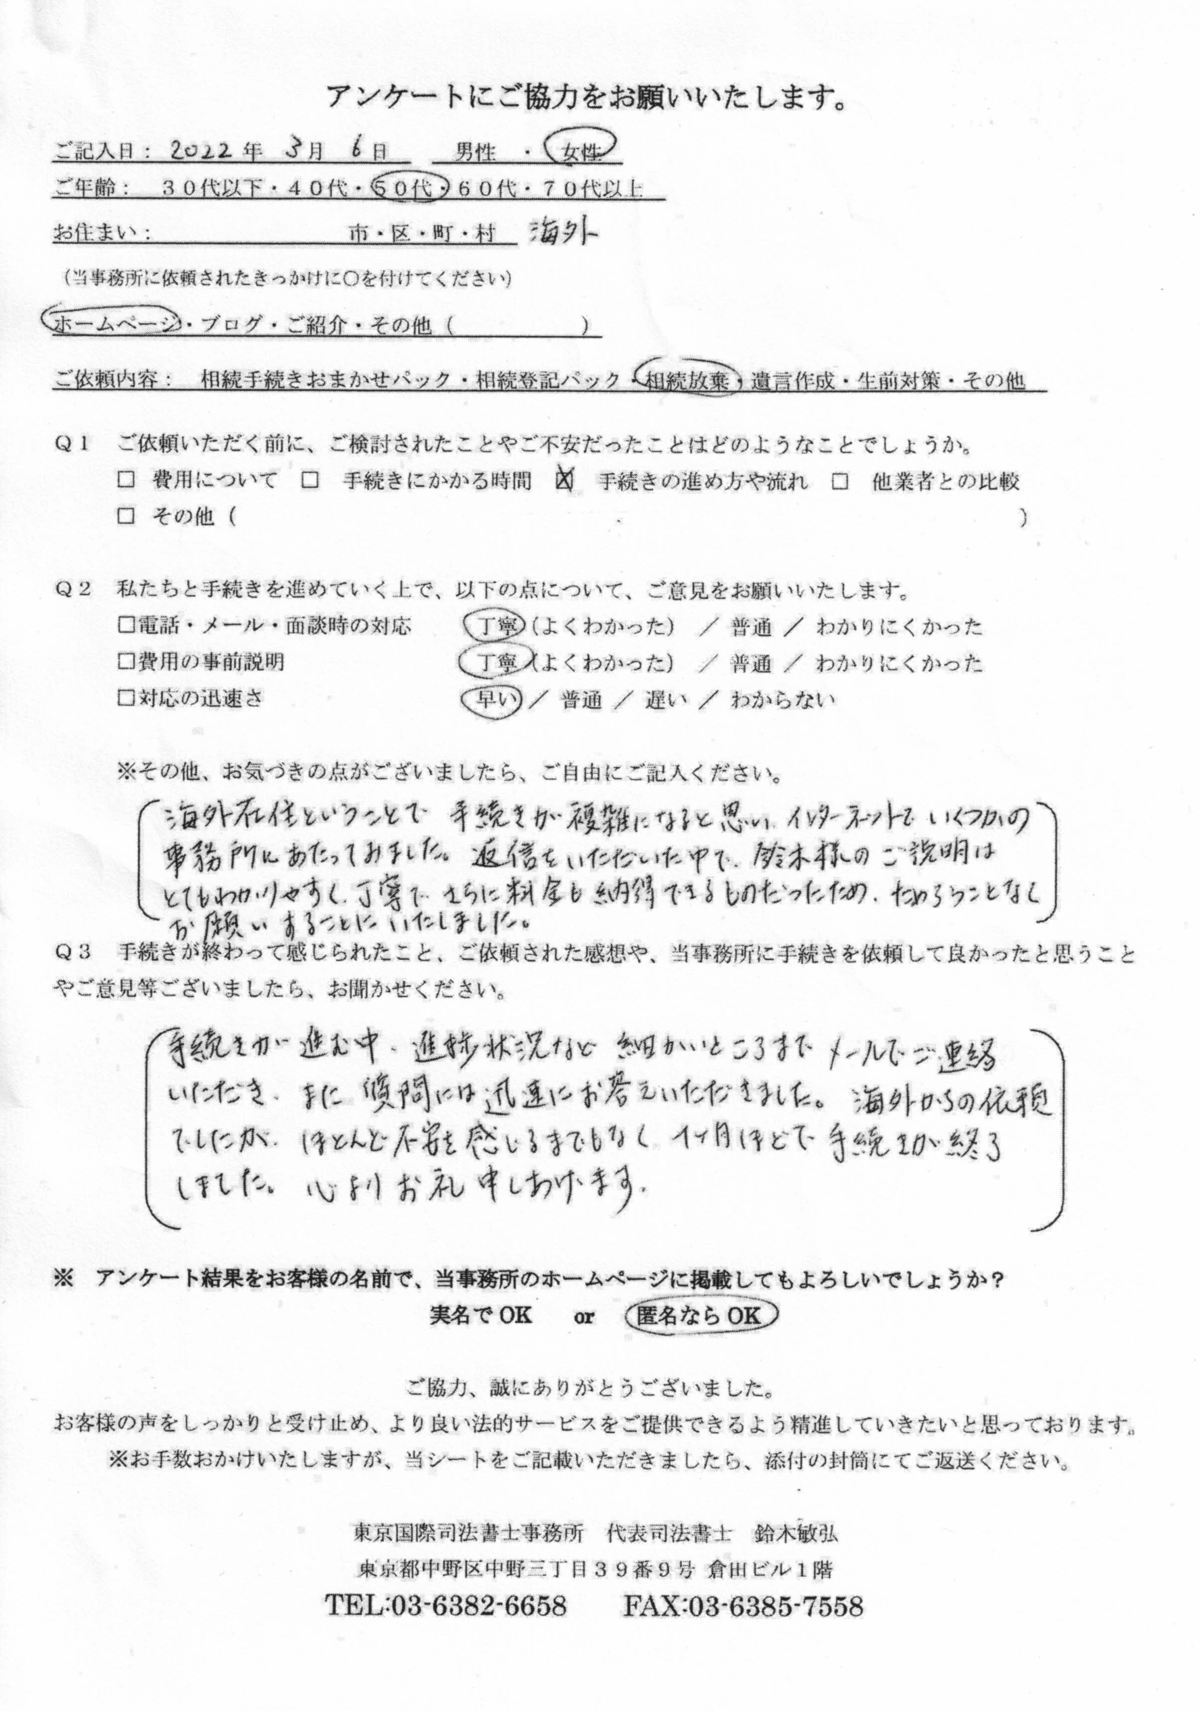 アンケートにご協力をお願いいたします。
ご記入日：2022年 3月 6日 男性 ・ 女性
ご年齢： 30代以下・40代・50代・60代・70代以上
お住まい： 市・区・町・村 海外
（当事務所に依頼されたきっかけに〇を付けてください）
ホームページ・ブログ・ご紹介・その他（ ）
ご依頼内容： 相続手続きおまかせパック・相続登記パック・相続放棄・遺言作成・生前対策・その他
Q1 ご依頼いただく前に、ご検討されたことやご不安だったことはどのようなことでしょうか。
□ 費用について □ 手続きにかかる時間 ☒ 手続きの進め方や流れ □ 他業者との比較
□ その他（ ）
Q2 私たちと手続きを進めていく上で、以下の点について、ご意見をお願いいたします。
□電話・メール・面談時の対応 丁寧（よくわかった） ／ 普通 ／ わかりにくかった
□費用の事前説明 丁寧（よくわかった） ／ 普通 ／ わかりにくかった
□対応の迅速さ 早い ／ 普通 ／ 遅い ／ わからない
※その他、お気づきの点がございましたら、ご自由にご記入ください。
海外在住ということで 手続きが複雑になると思い、インターネットでいくつかの
事務所にあたってみました。返信をいただいた中で、鈴木様のご説明は
とてもわかりやすく、丁寧で、さらに料金も納得できるものだったため、ためらうことなく
お願いすることにいたしました。
Q3 手続きが終わって感じられたこと、ご依頼された感想や、当事務所に手続きを依頼して良かったと思うこと
やご意見等ございましたら、お聞かせください。
手続きが進む中、進捗状況など 細かいところまで メールでご連絡
いただき、また 質問には迅速にお答えいただきました。海外からの依頼
でしたが、ほとんど不安を感じるまでもなく、1ヶ月ほどで 手続きが終了
しました。心よりお礼申しあげます。
※ アンケート結果をお客様の名前で、当事務所のホームページに掲載してもよろしいでしょうか？
実名でOK or 匿名ならOK
ご協力、誠にありがとうございました。
お客様の声をしっかりと受け止め、より良い法的サービスをご提供できるよう精進していきたいと思っております。
※お手数おかけいたしますが、当シートをご記載いただきましたら、添付の封筒にてご返送ください。
東京国際司法書士事務所 代表司法書士 鈴木敏弘
東京都中野区中野三丁目39番9号 倉田ビル1階
TEL:03-6382-6658 FAX:03-6385-7558